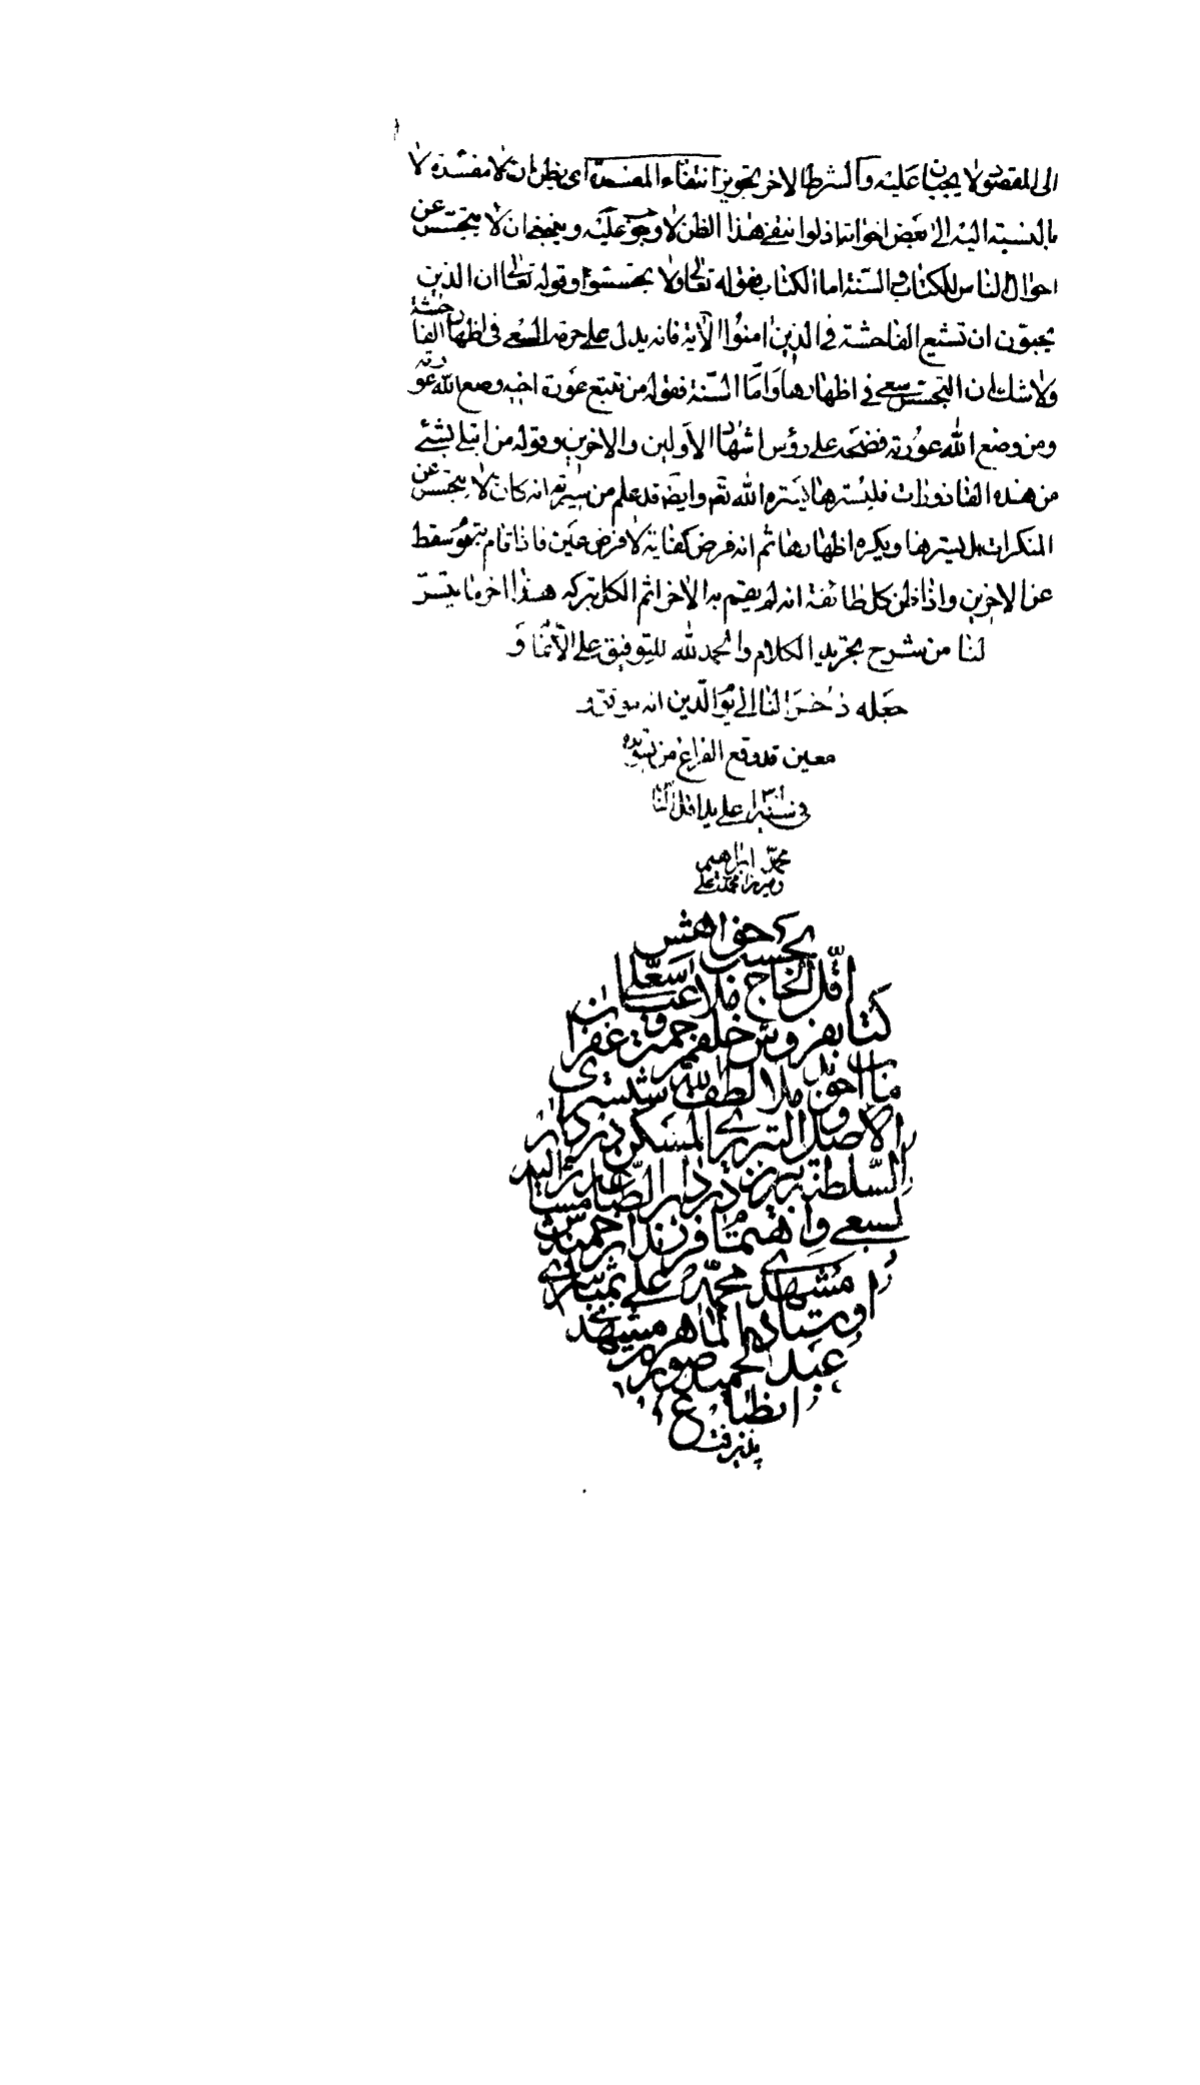 الى المقصود لا يجبان عليه والشرط الاخر تجويز انتفاء المفسدة اى يظن ان لا مفسدة لا
بالنسبة اليه ولا الى بعض اخوانه اذ لو انتفى هذا الظن لا وجوب عليه وينبغى ان لا يتجسس عن
احوال الناس للكتاب والسنة اما الكتاب فقوله تعالى ولا تجسسوا وقوله تعالى ان الذين
يحبون ان تشيع الفاحشة فى الذين امنوا الآية فانه يدل على حرمة السعى فى اظهار الفاحشة
ولا شك ان التجسس سعى فى اظهارها واما السنة فقوله من تتبع عورة اخيه وضع الله عورته
ومن وضع الله عورته فضحه على رؤس اشهاد الاولين والاخرين وقوله من ابتلى بشئ
من هذه القاذورات فليسترها يستره الله تعم وايضا قد علم من سيرته انه كان لا يتجسس عن
المنكرات بل يسترها ويكره اظهارها ثم انه فرض كفاية لا فرض عين فاذا قام به قوم سقط
عن الاخرين واذا ظن كل طائفة انه لم يقم به الاخر اثم الكل بتركه هذا اخر ما يتسر
لنا من شرح تجريد الكلام والحمد لله للتوفيق على الاتمام و
جعله ذخرا لنا الى يوم الدين انه موفق و
معين قد وقع الفراغ من تسويده
فى سنة على يد اقل
محمد ابراهيم
و ميرزا محمد على
بحسب خواهش
اقل الحاج ملا عباسعلى
كتابفروش خلف مرحمت و غفران
مناب اخوند ملا لطف الله شبسترى
الاصل و التبريزى المسكن در دار
السلطنة تبريز در دار الصناعه
بسعى و اهتمام فرزند ارجمندش
مشهدى محمد على
اوستاد الماهر مشهدى
عبدالحميد صورت
انطباع
پذيرفت